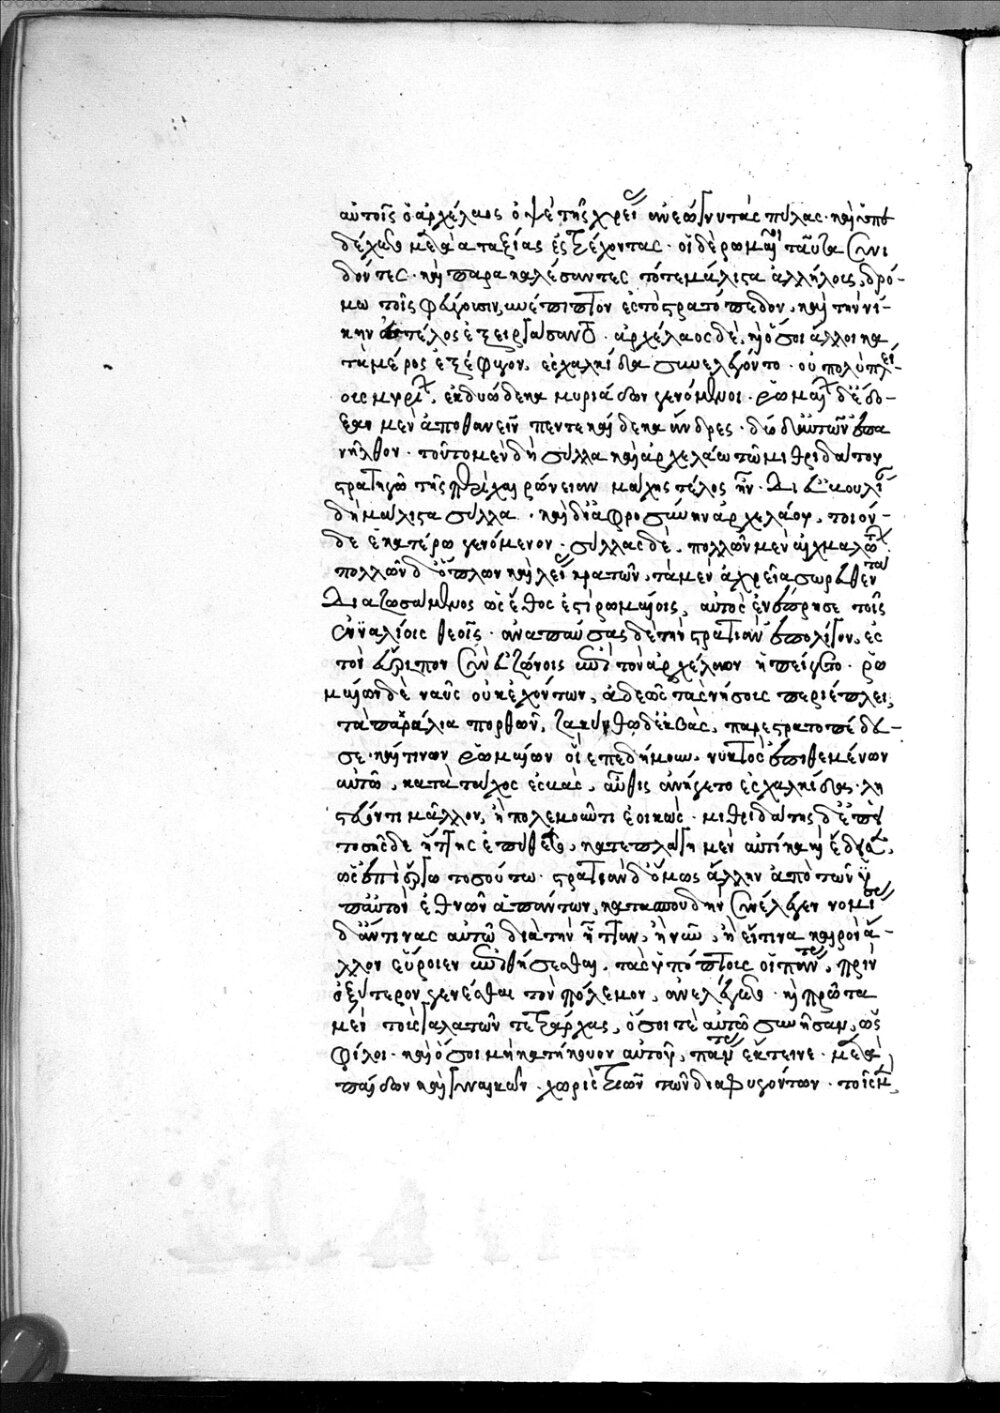 αὐτοῖς ὁ ἀρχέλαος ὀψὲ τῆς χρείας ἀνεώγνυ τὰς πύλας· καὶ ὑπε
δέχετο μετὰ ἀταξίας ἐστρέχοντας· οἱ δὲ ῥωμαῖοι ταῦτα συνι
δόντες· καὶ παρακαλέσαντες τότε μάλιστα ἀλλήλοις, δρό-
μω τοῖς φεύγουσιν συνέπιπτον ἐς τὸ στρατόπεδον, καὶ τὴν νί-
κην ἐς τέλος ἐξειργάσαντο· ἀρχέλαος δὲ, καὶ ὅσοι ἄλλοι κα
τὰ μέρος ἐξέφυγον, ἐς χαλκίδα συνελέγοντο· οὐ πολὺ πλεί
ους μυρίων, ἐκ δυώδεκα μυριάδων γενόμενοι· ῥωμαίων δὲ ἔδο-
ξαν μὲν ἀποθανεῖν πεντεκαίδεκα ἄνδρες· δύο δ' αὐτῶν ἐπα
νῆλθον· τοῦτο μὲν δὴ σύλλα καὶ ἀρχελάω τῶ μιθριδάτου
στρατηγῶ τῆς περὶ χαιρώνειαν μάχης τέλος ἦν· δι' εὐβουλίαν
δὴ μάλιστα σύλλα· καὶ δι' ἀφροσύνην ἀρχελάου, τοιόν-
δε ἑκατέρω γενόμενον· σύλλας δὲ, πολλῶν μὲν αἰχμαλώτων
πολλῶν δ' ὅπλων καὶ λείας κρατῶν, τὰ μὲν ἀχρεῖα σωρευθέντα
διαζωσάμενος ὡς ἔθος ἐστὶ ῥωμαίοις, αὐτὸς ἐνέπρησε τοῖς
ἐνυαλίοις θεοῖς· ἀναπαύσας δὲ τὴν στρατιὰν ἐπ' ὀλίγον, ἐς
τὸν εὔριπον σὺν εὐζώνοις ἐπὶ τὸν ἀρχέλαον ἠπείγετο· ῥω
μαίων δὲ ναῦς οὐκ ἐχόντων, ἀδεῶς τὰς νήσους περιέπλει,
τὰ παράλια πορθῶν, ζακύνθω δ' ἐκβὰς, παρεστρατοπέδευ-
σε· καί τινων ῥωμαίων οἳ ἐπεδήμουν, νυκτὸς ἐπιθεμένων
αὐτῶ, κατὰ τάχος ἐσβὰς, αὖθις ἀνήγετο ἐς χαλκίδα· λη
στεύοντι μᾶλλον, ἢ πολεμοῦντι ἐοικώς· μιθριδάτης δ' ἐπεὶ
τοσῆσδε ἥττης ἐπύθετο, κατεπλάγη μὲν αὐτίκα καὶ ἔδεισεν,
ὡς ἐπὶ ἔργω τοσούτω· στρατιὰν δ' ὅμως ἄλλην ἀπὸ τῶν ὑ
π' αὐτὸν ἐθνῶν ἁπάντων, κατὰ σπουδὴν συνέλεγεν νομίσας
δ' ἄν τινας αὐτῶ διὰ τὴν ἧτταν, ἢ νῦν, ἢ εἴ τινα καιρὸν ἄ-
λλον εὕροιεν ἐπιθήσεσθαι, τοὺς ὑπόπτους οἱ πάντας, πρὶν
ὀξύτερον γενέσθαι τὸν πόλεμον, ἀνελέγετο· καὶ πρῶτα
μὲν τοὺς γαλατῶν τετράρχας, ὅσοι τὲ αὐτῶ συνῆσαν, ὡς
φίλοι· καὶ ὅσοι μὴ κατήκουον αὐτοῦ, πάντας ἔκτεινε· μετὰ
παίδων καὶ γυναικῶν· χωρὶς τριῶν τῶν διαφυγόντων· τοῖς μὲν